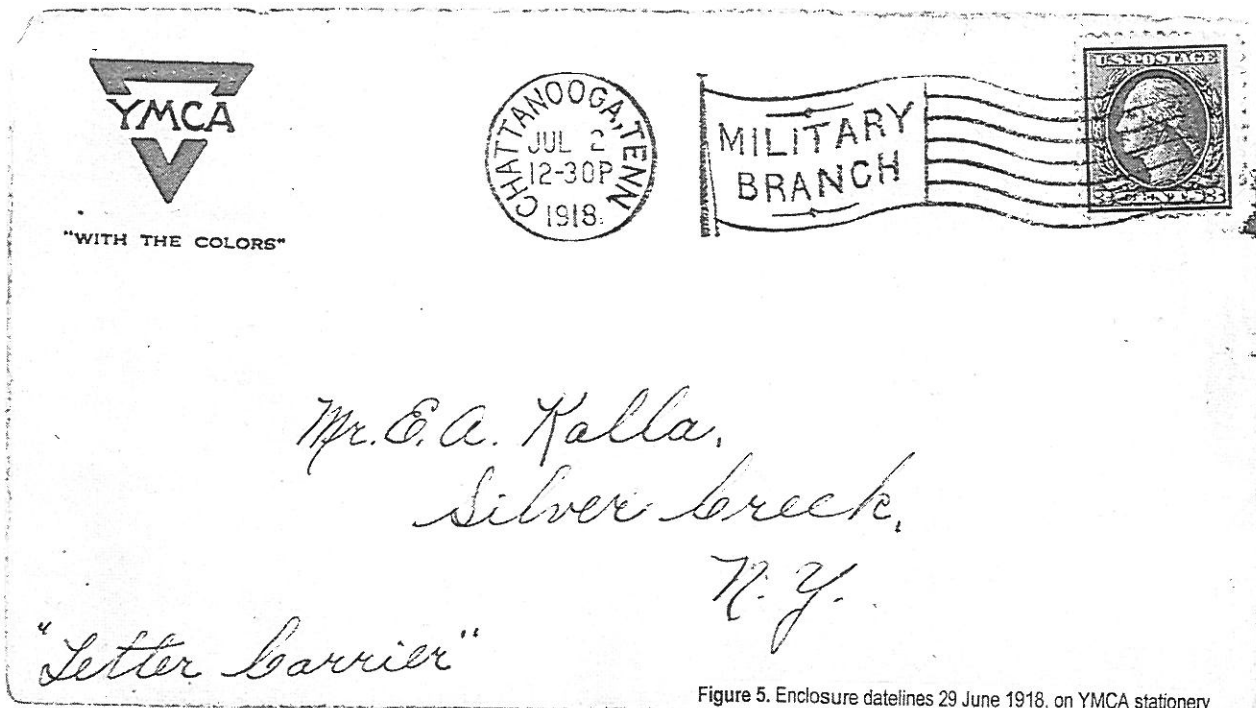 YMCA
"WITH THE COLORS"
CHATTANOOGA, TENN
JUL 2
12-30P
1918
MILITARY
BRANCH
U.S. POSTAGE
3 CENTS 3
Mr. E. A. Kalla,
Silver Creek,
N. Y.
"Letter Carrier"
Figure 5. Enclosure datelines 29 June 1918, on YMCA stationery